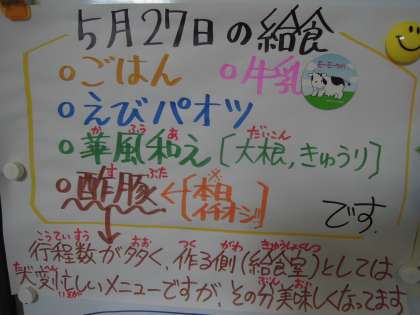 5月27日の給食
・ごはん ・牛乳
・えびパオツ
・華風和え[大根,きゅうり]
・酢豚←[※本日イチオシ]
です。
行程数が多く、作る側(給食室)としては
大変忙しいメニューですが、その分美味しくなってます